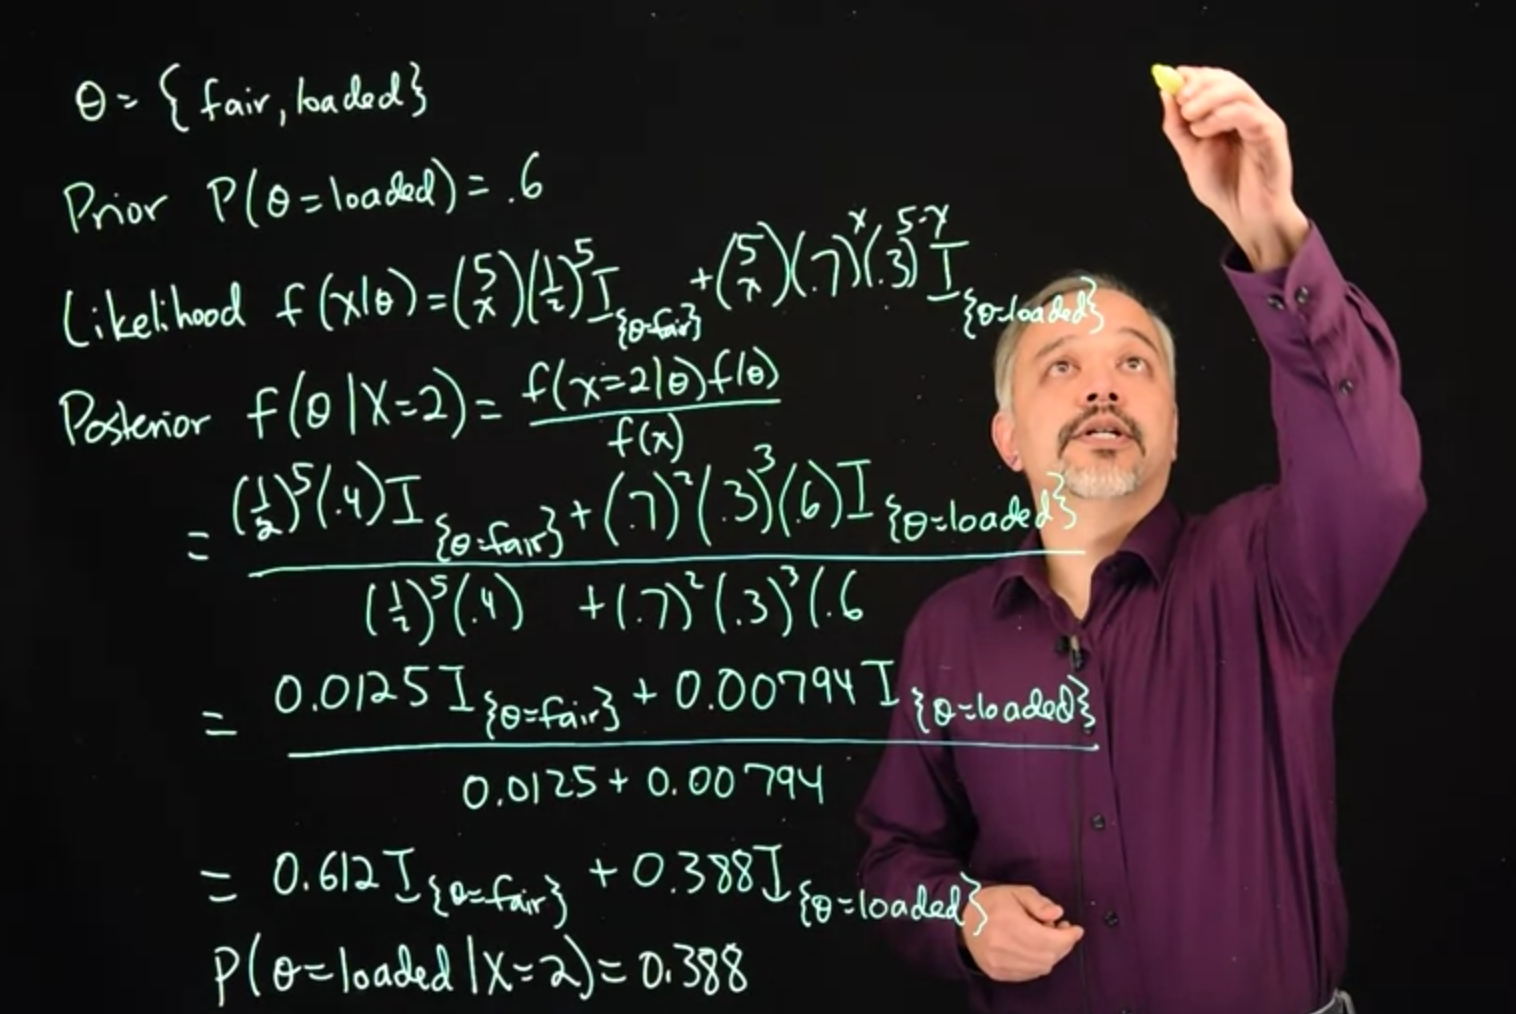 θ = {fair, loaded}
Prior P(θ=loaded) = .6
Likelihood f(x|θ) = (5 x)(1/2)^5 I_{θ=fair} + (5 x)(.7)^x (.3)^{5-x} I_{θ=loaded}
Posterior f(θ|X=2) = f(x=2|θ)f(θ) / f(x)
= (1/2)^5 (.4) I_{θ=fair} + (.7)^2 (.3)^3 (.6) I_{θ=loaded}
(1/2)^5 (.4) + (.7)^2 (.3)^3 (.6
= 0.0125 I_{θ=fair} + 0.00794 I_{θ=loaded}
0.0125 + 0.00794
= 0.612 I_{θ=fair} + 0.388 I_{θ=loaded}
P(θ=loaded|X=2) = 0.388